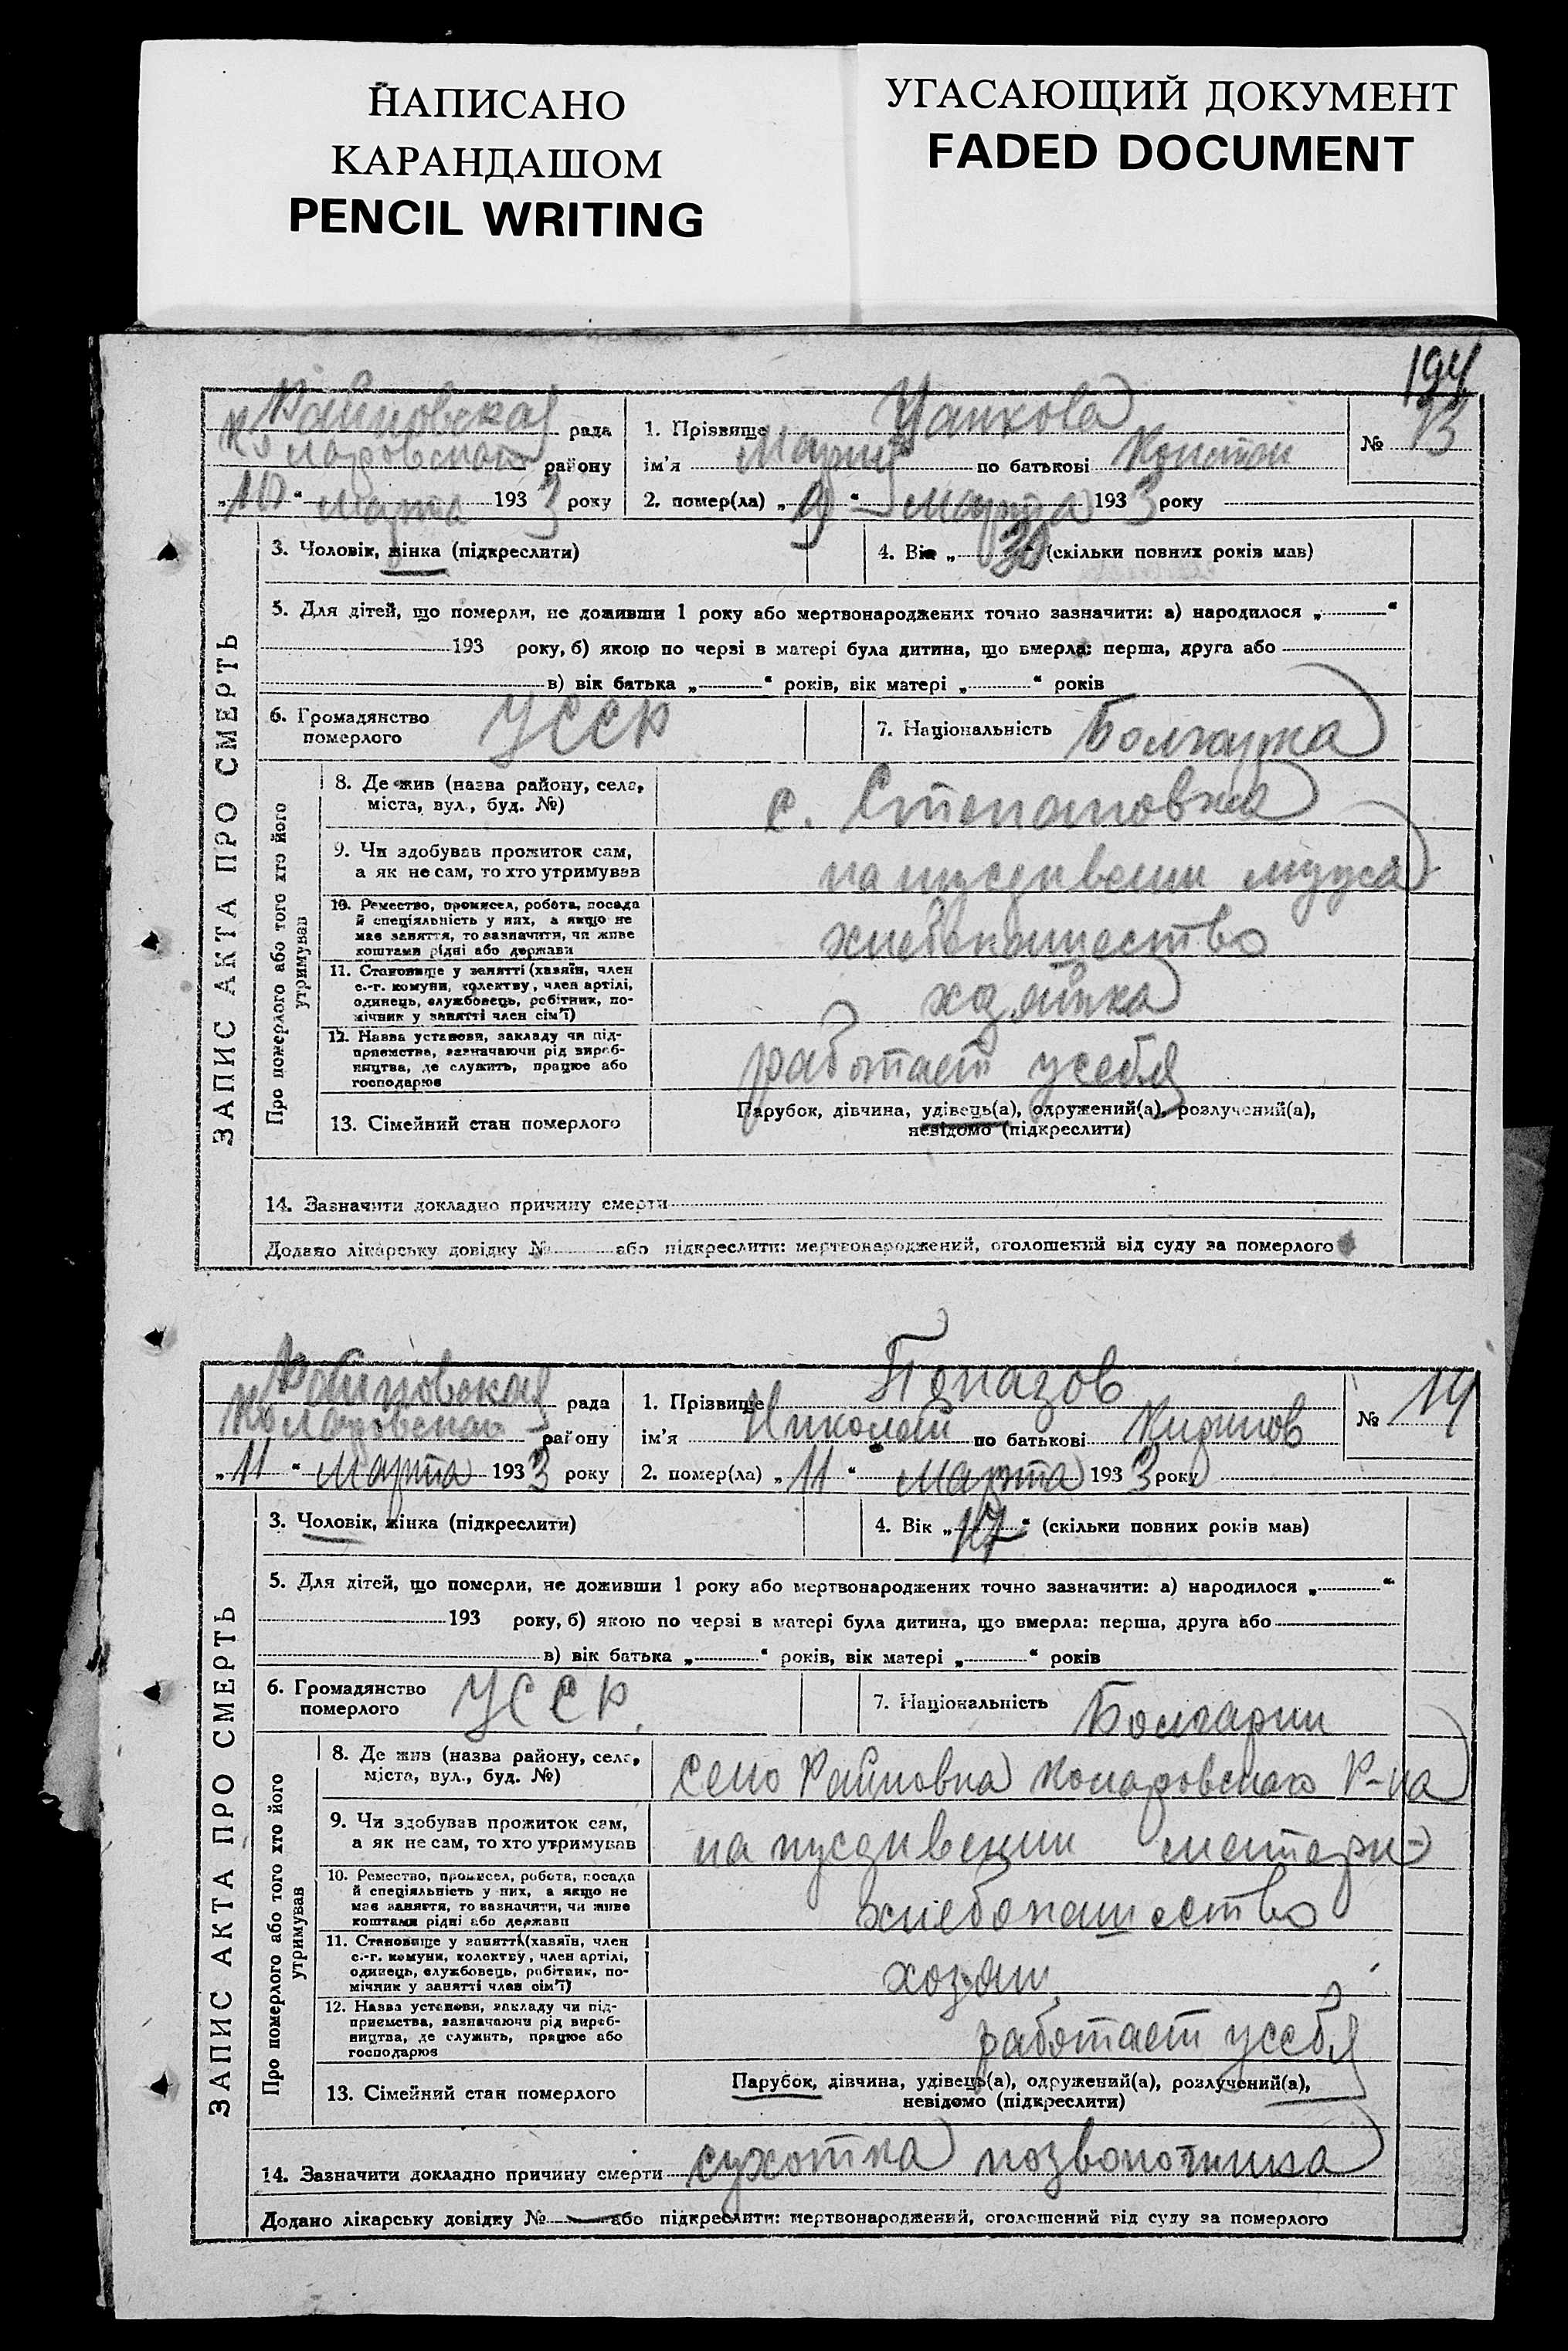 НАПИСАНО
КАРАНДАШОМ
PENCIL WRITING
УГАСАЮЩИЙ ДОКУМЕНТ
FADED DOCUMENT
194
ЗАПИС АКТА ПРО СМЕРТЬ
Райновская рада
району
„10“ марта 1933 року
1. Прізвище Цапкова
ім'я Мария по батькові Констан
№ 13
2. помер(ла) „9“ Марта 1933 року
3. Чоловік, жінка (підкреслити)
4. Вік „30“ (скільки повних років мав)
5. Для дітей, що померли, не доживши 1 року або мертвонароджених точно зазначити: а) народилося „ “
193 року, б) якою по черзі в матері була дитина, що вмерла: перша, друга або
в) вік батька „ “ років, вік матері „ “ років
6. Громадянство померлого УССР
7. Національність Болгарка
Про померлого або того хто його утримував
8. Де жив (назва району, села, міста, вул., буд. №) с. Степановка
9. Чи здобував прожиток сам, а як не сам, то хто утримував на иждивении мужа
10. Ремество, промисел, робота, посада й спеціяльність у них, а якщо не має заняття, то зазначити, чи живе коштами рідні або держави хлебопашество
11. Становище у занятті (хазяїн, член с.-г. комуни, колективу, член артілі, одинець, службовець, робітник, помічник у занятті член сім'ї) хозяйка
12. Назва установи, закладу чи підприємства, зазначаючи рід виробництва, де служить, працює або господарює работает усебя
13. Сімейний стан померлого Парубок, дівчина, удівець(а), одружений(а), розлучений(а),
невідомо (підкреслити)
14. Зазначити докладно причину смерти
Додано лікарську довідку № або підкреслити: мертвонароджений, оголошений від суду за померлого
ЗАПИС АКТА ПРО СМЕРТЬ
Райновская рада
району
„11“ Марта 1933 року
1. Прізвище Попазов
ім'я Николай по батькові Кирилов
№ 14
2. помер(ла) „11“ Марта 1933 року
3. Чоловік, жінка (підкреслити)
4. Вік „17“ (скільки повних років мав)
5. Для дітей, що померли, не доживши 1 року або мертвонароджених точно зазначити: а) народилося „ “
193 року, б) якою по черзі в матері була дитина, що вмерла: перша, друга або
в) вік батька „ “ років, вік матері „ “ років
6. Громадянство померлого УССР.
7. Національність Болгарин
Про померлого або того хто його утримував
8. Де жив (назва району, села, міста, вул., буд. №) село Райновка Коларовскаго Р-на
9. Чи здобував прожиток сам, а як не сам, то хто утримував на иждивении матери
10. Ремество, промисел, робота, посада й спеціяльність у них, а якщо не має заняття, то зазначити, чи живе коштами рідні або держави хлебопашество
11. Становище у занятті (хазяїн, член с.-г. комуни, колективу, член артілі, одинець, службовець, робітник, помічник у занятті член сім'ї) хозяин
12. Назва установи, закладу чи підприємства, зазначаючи рід виробництва, де служить, працює або господарює работает усебя
13. Сімейний стан померлого Парубок, дівчина, удівець(а), одружений(а), розлучений(а),
невідомо (підкреслити)
14. Зазначити докладно причину смерти сухотка позвоночника
Додано лікарську довідку № або підкреслити: мертвонароджений, оголошений від суду за померлого